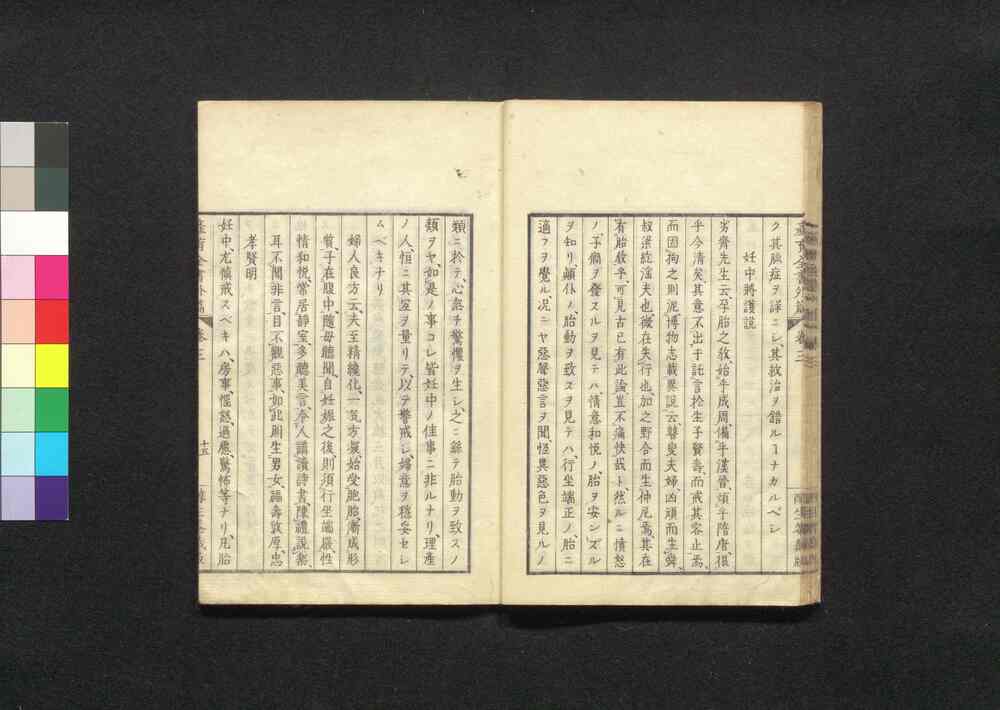 ク其脉症ヲ詳ニシ、其救治ヲ錯ルヿナカルベシ
妊中將護説
劣齊先生云、孕胎之敎、始乎成周、備乎漢晉、頌乎隋唐、俱
乎今清矣、其意不出于託言於生子賢壽、而戒其容止焉、
而固拘之則泥、博物志載異説、云瞽叟夫婦凶頑而生舜、
叔梁紇淫夫也、徵在失行也、加之野合而生仲尼焉、其在
有胎敎乎、可見古已有此論、豈不痛快哉ト、然ルニ憤怒
ノ、子癇ヲ發スルヲ見テハ、情意和悦ノ、胎ヲ安ンズル
ヲ知リ、顚仆ノ、胎動ヲ致スヲ見テハ、行坐端正ノ、胎ニ
適フヲ覺ル、况ニヤ惡聲惡言ヲ聞、怪異惡色ヲ見ルノ
類ニ於テ、心無チ驚懼ヲ生シ、之ニ繇テ胎動ヲ致スノ
類ヲヤ、如是ノ事コレ皆妊中ノ佳事ニ非ルナリ、理產
ノ人、恒ニ其宜ヲ量リテ、以テ警戒シ、婦意ヲ穩妥セシ
ムベキナリ
婦人良方云、夫至精纔化、一氣方凝、始受胞胎、漸成形
質、子在腹中、隨母聽聞、自妊娠之後、則須行坐端嚴、性
情和悦、常居靜室、多聽美言、令人講讀詩書、陳禮説樂、
耳不聞非言、目不觀惡事、如此則生男女、福壽敦厚、忠
孝賢明
妊中、尤慎戒スベキハ、房事、惱怒、過慮、驚怖等ナリ、凡胎
產育全書外篇 卷三
十五